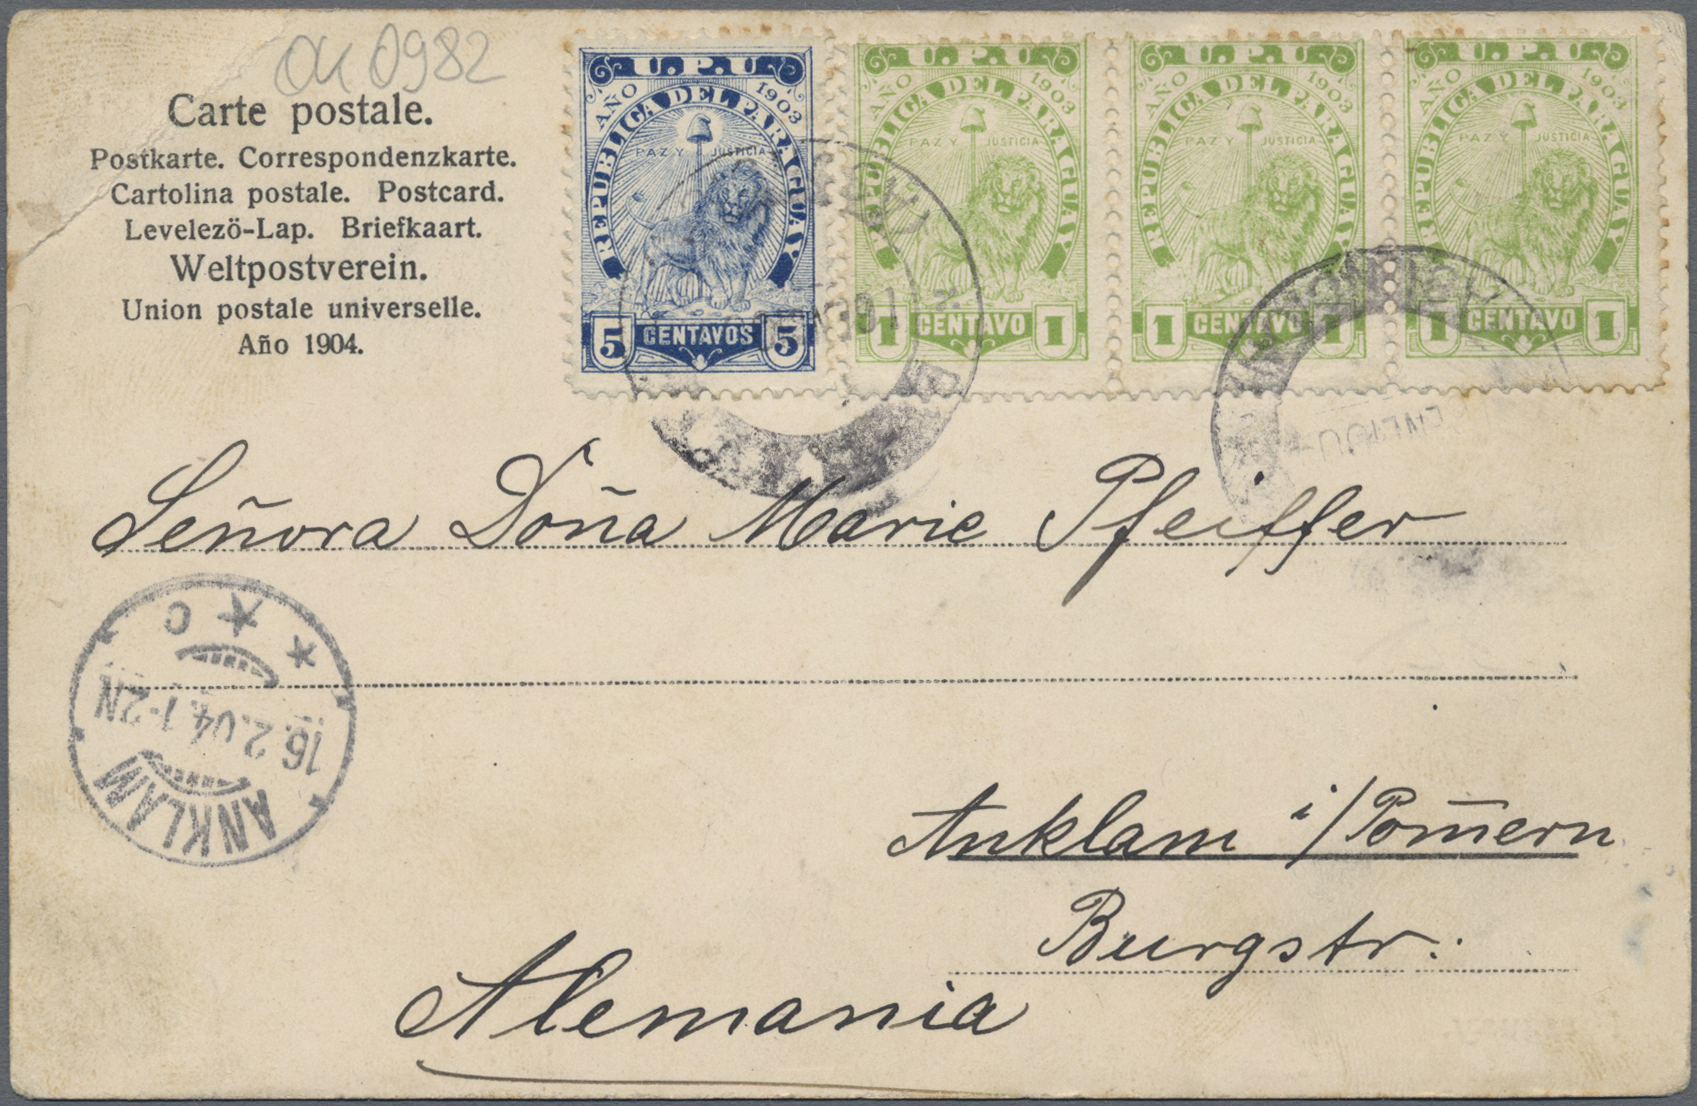 0982
Carte postale.
Postkarte. Correspondenzkarte.
Cartolina postale. Postcard.
Levelezö-Lap. Briefkaart.
Weltpostverein.
Union postale universelle.
Año 1904.
U.P.U
AÑO 1903
REPUBLICA DEL PARAGUAY
PAZ Y JUSTICIA
5 CENTAVOS 5
U.P.U
AÑO 1903
REPUBLICA DEL PARAGUAY
PAZ Y JUSTICIA
1 CENTAVO 1
U.P.U
AÑO 1903
REPUBLICA DEL PARAGUAY
PAZ Y JUSTICIA
1 CENTAVO 1
U.P.U
AÑO 1903
REPUBLICA DEL PARAGUAY
PAZ Y JUSTICIA
1 CENTAVO 1
Señora Doña Marie Pfeiffer
ANKLAM
16.2.04.1-2N
* * C
Anklam i/Pom̄ern
Burgstr:
Alemania